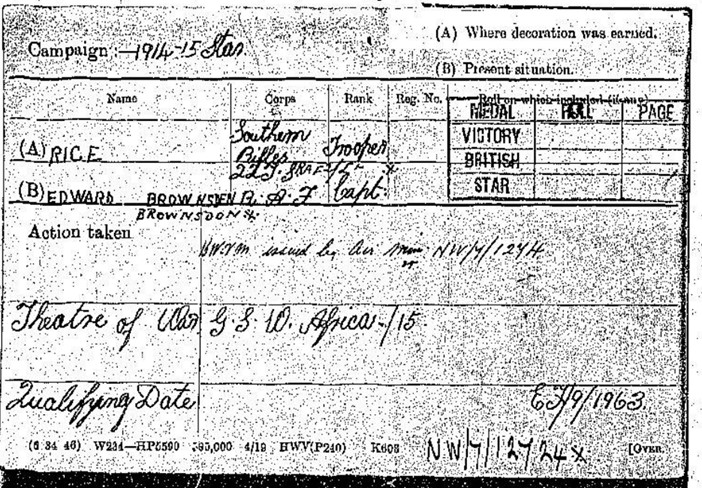 (A) Where decoration was earned.
Campaign :- 1914-15 Star
(B) Present situation.
Name Corps Rank Reg. No. Roll on which included (if any)
MEDAL ROLL PAGE
VICTORY
BRITISH
STAR
(A) RICE Southern Rifles Trooper
(B) EDWARD BROWNSDEN R. A. F Capt.
BROWNSDON *
Action taken
BWVM issued by Air Min NW/7/1274
Theatre of War G. S. W. Africa -/15.
Qualifying Date
EF/9/1963.
(6 34 46) W234—HP5590 4/19 HWV(P240) K608
NW/7/12724 x
[OVER.